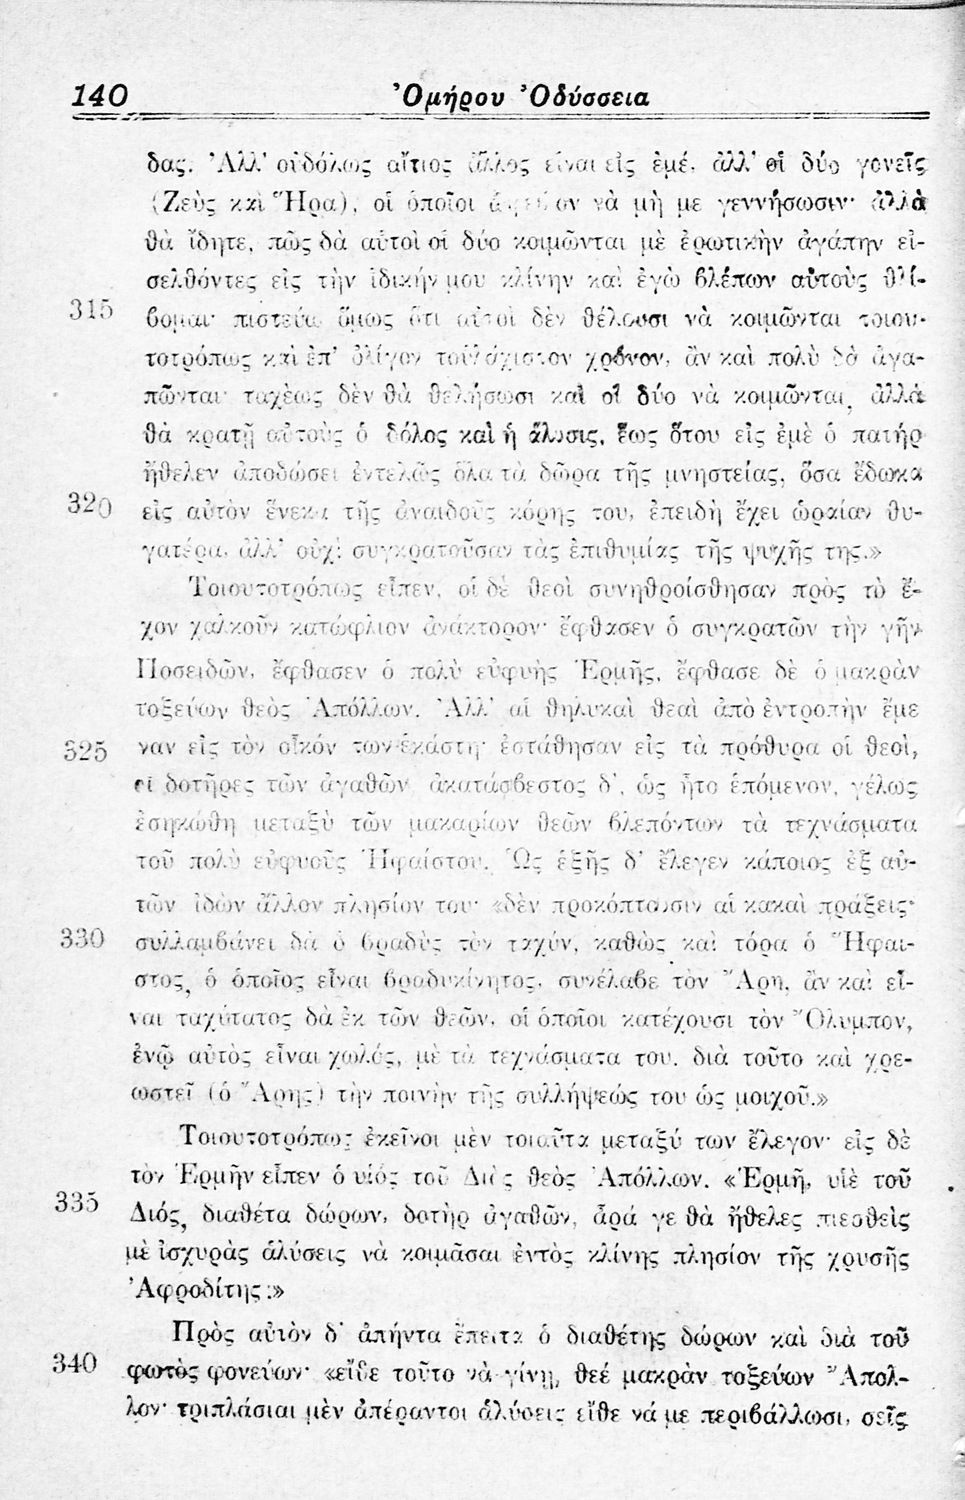 140 Ὁμήρου Ὀδύσσεια
δας. Ἀλλ' οὐδόλως αἴτιος ἄλλος εἶναι εἰς ἐμέ, ἀλλ' οἱ δύο γονεῖς
(Ζεὺς καὶ Ἥρα), οἱ ὁποῖοι νὰ μὴ με γεννήσωσιν· ἀλλὰ
θὰ ἴδητε, πῶς δὰ αὐτοὶ οἱ δύο κοιμῶνται μὲ ἐρωτικὴν ἀγάπην εἰ-
σελθόντες εἰς τὴν ἰδικήν μου κλίνην καὶ ἐγὼ βλέπων αὐτοὺς θλί-
315 βομαι· πιστεύω ὅμως ὅτι αὐτοὶ δὲν θέλουσι νὰ κοιμῶνται τοιου-
τοτρόπως καὶ ἐπ' ὀλίγον τοὐλάχιστον χρόνον, ἂν καὶ πολὺ δὰ ἀγα-
πῶνται· ταχέως δὲν θὰ θελήσωσι καὶ οἱ δύο νὰ κοιμῶνται, ἀλλὰ
θὰ κρατῇ αὐτοὺς ὁ δόλος καὶ ἡ ἅλυσις, ἕως ὅτου εἰς ἐμὲ ὁ πατὴρ
ἤθελεν ἀποδώσει ἐντελῶς ὅλα τὰ δῶρα τῆς μνηστείας, ὅσα ἔδωκα
320 εἰς αὐτὸν ἕνεκα τῆς ἀναιδοῦς κόρης του, ἐπειδὴ ἔχει ὡραίαν θυ-
γατέρα, ἀλλ' οὐχὶ συγκρατοῦσαν τὰς ἐπιθυμίας τῆς ψυχῆς της.»
Τοιουτοτρόπως εἶπεν, οἱ δὲ θεοὶ συνηθροίσθησαν πρὸς τὸ ἔ-
χον χαλκοῦν κατώφλιον ἀνάκτορον· ἔφθασεν ὁ συγκρατῶν τὴν γῆν
Ποσειδῶν, ἔφθασεν ὁ πολὺ εὐφυὴς Ἑρμῆς, ἔφθασε δὲ ὁ μακρὰν
τοξεύων θεὸς Ἀπόλλων. Ἀλλ' αἱ θηλυκαὶ θεαὶ ἀπὸ ἐντροπὴν ἔμε
325 ναν εἰς τὸν οἶκόν των ἑκάστη· ἐστάθησαν εἰς τὰ πρόθυρα οἱ θεοί,
οἱ δοτῆρες τῶν ἀγαθῶν ἀκατάσβεστος δ', ὡς ἦτο ἑπόμενον, γέλως
ἐσηκώθη μεταξὺ τῶν μακαρίων θεῶν βλεπόντων τὰ τεχνάσματα
τοῦ πολὺ εὐφυοῦς Ἡφαίστου. Ὡς ἑξῆς δ' ἔλεγεν κάποιος ἐξ αὐ-
τῶν ἰδὼν ἄλλον πλησίον του· «δὲν προκόπτουσιν αἱ κακαὶ πράξεις·
330 συλλαμβάνει δὰ ὁ βραδὺς τὸν ταχύν, καθὼς καὶ τόρα ὁ Ἥφαι-
στος, ὁ ὁποῖος εἶναι βραδυκίνητος, συνέλαβε τὸν Ἄρη, ἂν καὶ εἶ-
ναι ταχύτατος δὰ ἐκ τῶν θεῶν, οἱ ὁποῖοι κατέχουσι τὸν Ὄλυμπον,
ἐνῷ αὐτὸς εἶναι χωλός, μὲ τὰ τεχνάσματα του. διὰ τοῦτο καὶ χρε-
ωστεῖ (ὁ Ἄρης) τὴν ποινὴν τῆς συλλήψεώς του ὡς μοιχοῦ.»
Τοιουτοτρόπως ἐκεῖνοι μὲν τοιαῦτα μεταξύ των ἔλεγον· εἰς δὲ
τὸν Ἑρμῆν εἶπεν ὁ υἱός τοῦ Διὸς θεὸς Ἀπόλλων. «Ἑρμῆ, υἱὲ τοῦ
335 Διός, διαθέτα δώρων, δοτὴρ ἀγαθῶν, ἆρά γε θὰ ἤθελες πιεσθεὶς
μὲ ἰσχυρὰς ἁλύσεις νὰ κοιμᾶσαι ἐντὸς κλίνης πλησίον τῆς χρυσῆς
Ἀφροδίτης;»
Πρὸς αὐτὸν δ' ἀπήντα ἔπειτα ὁ διαθέτης δώρων καὶ διὰ τοῦ
340 φωτὸς φονεύων· «εἴθε τοῦτο νὰ γίνῃ, θεέ μακρὰν τοξεύων Ἄπολ-
λον· τριπλάσιαι μὲν ἀπέραντοι ἁλύσεις εἴθε νά με περιβάλλωσι, σεῖς